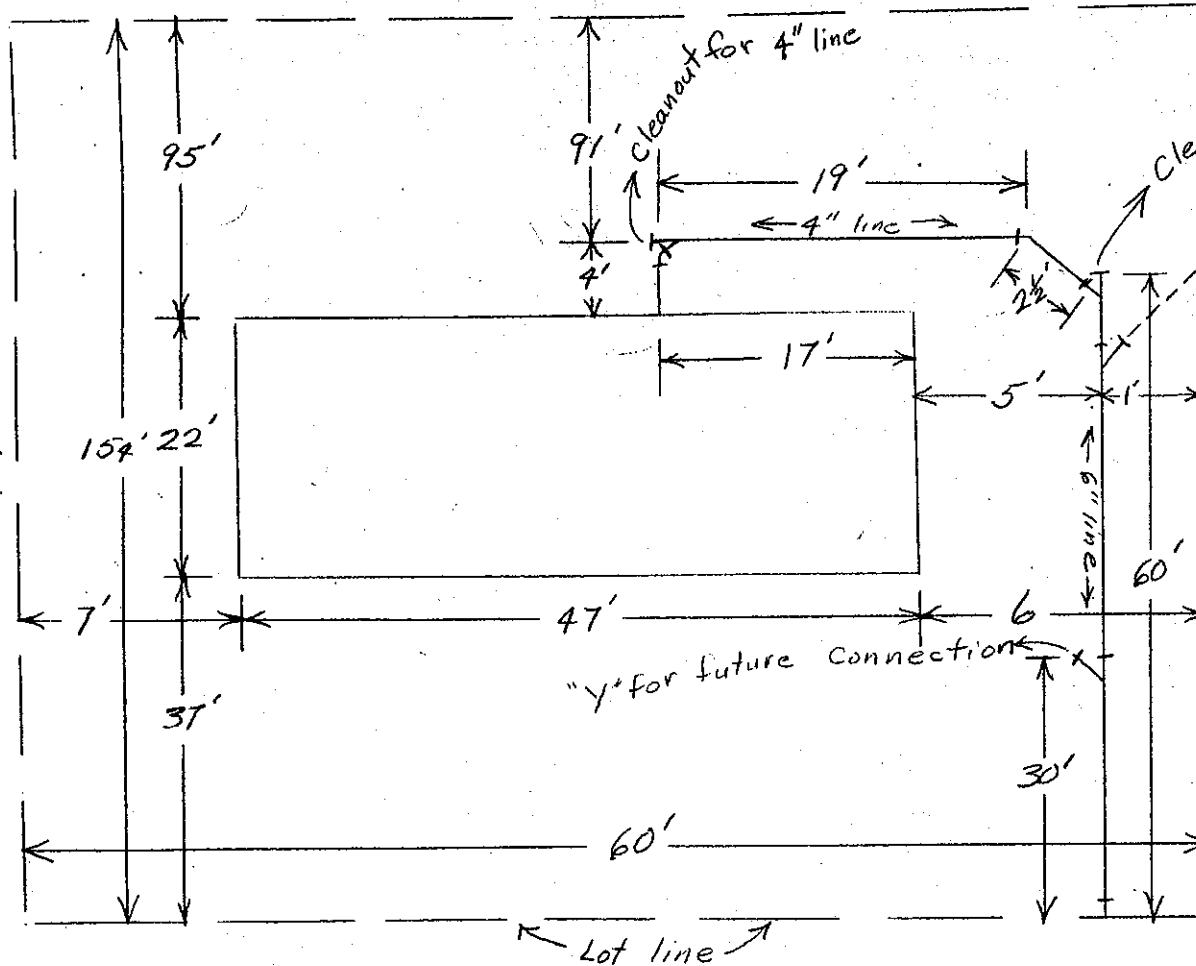 Cleanout for 4" line
95'
91'
19'
Cle
4" line
4'
2½'
17'
5'
1'
154'
22'
6" line
60'
7'
47'
6
"Y" for future Connection
37'
30'
60'
Lot line